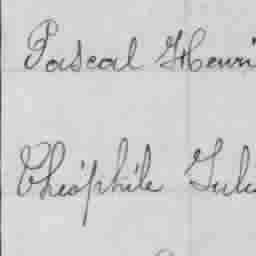 Pascal Henri
Théophile Juli